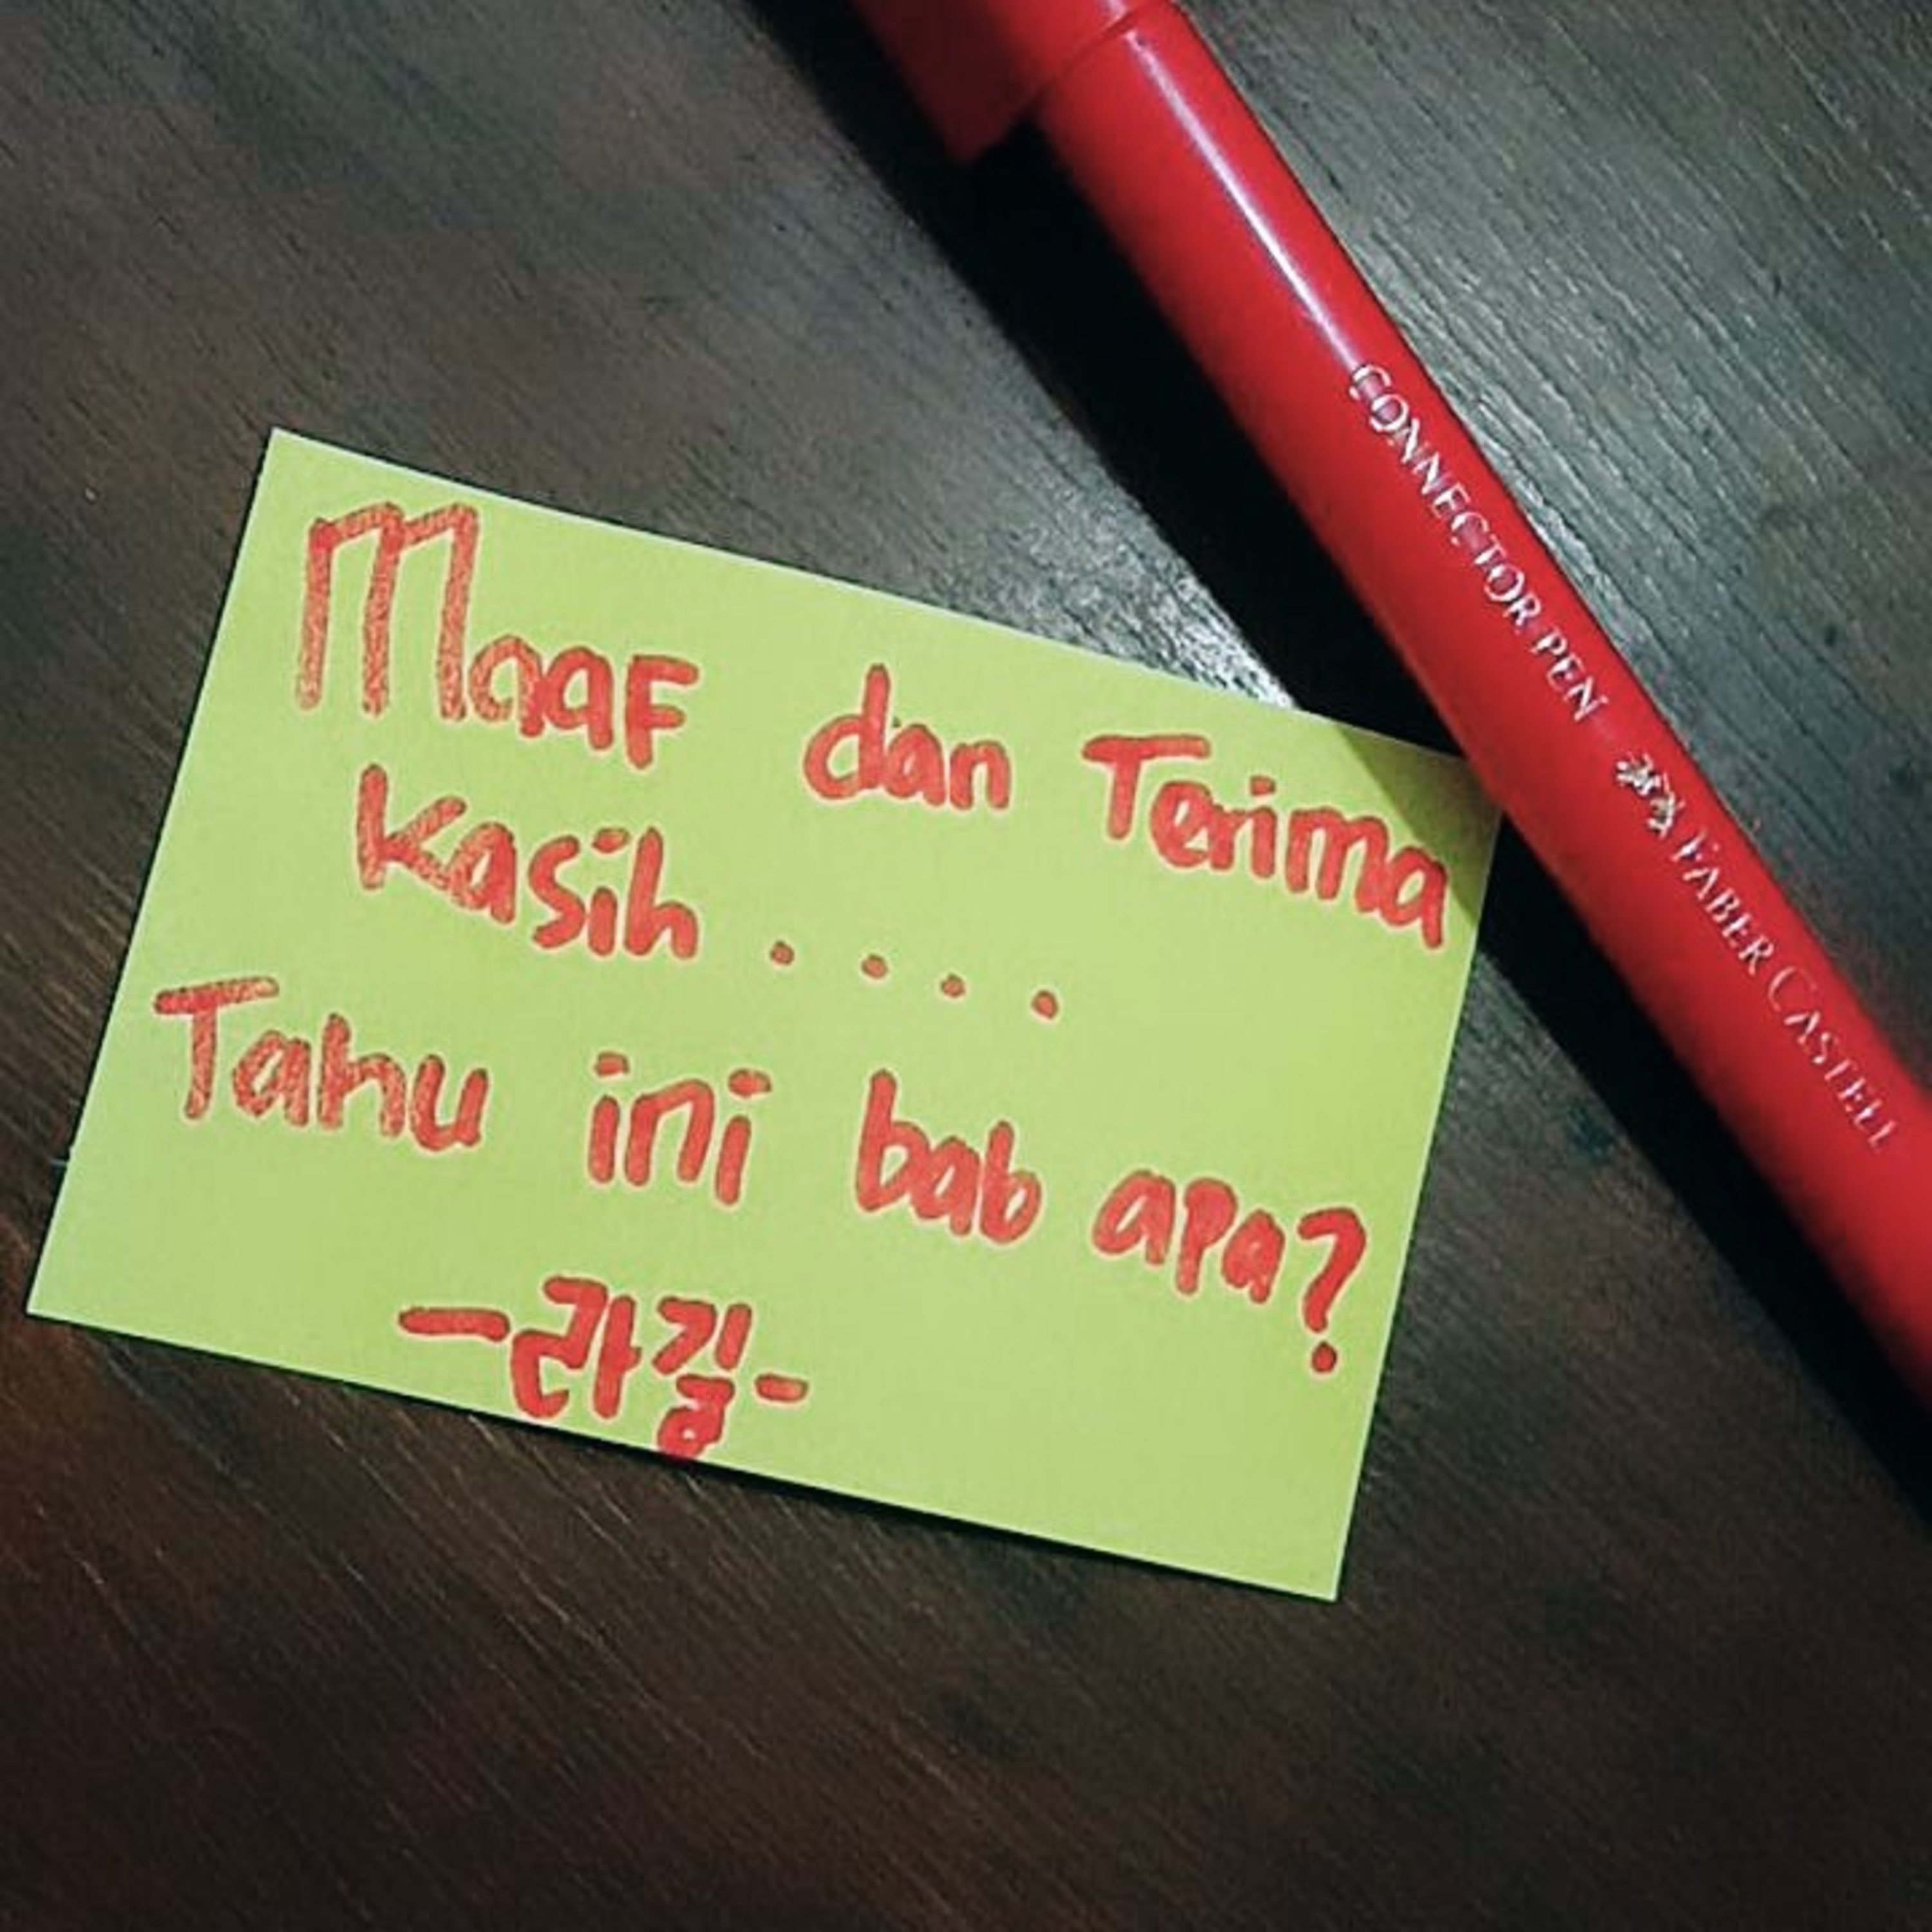 Maaf dan Terima
Kasih ....
Tahu ini bab apa?
-라길-
CONNECTOR PEN FABER CASTELL